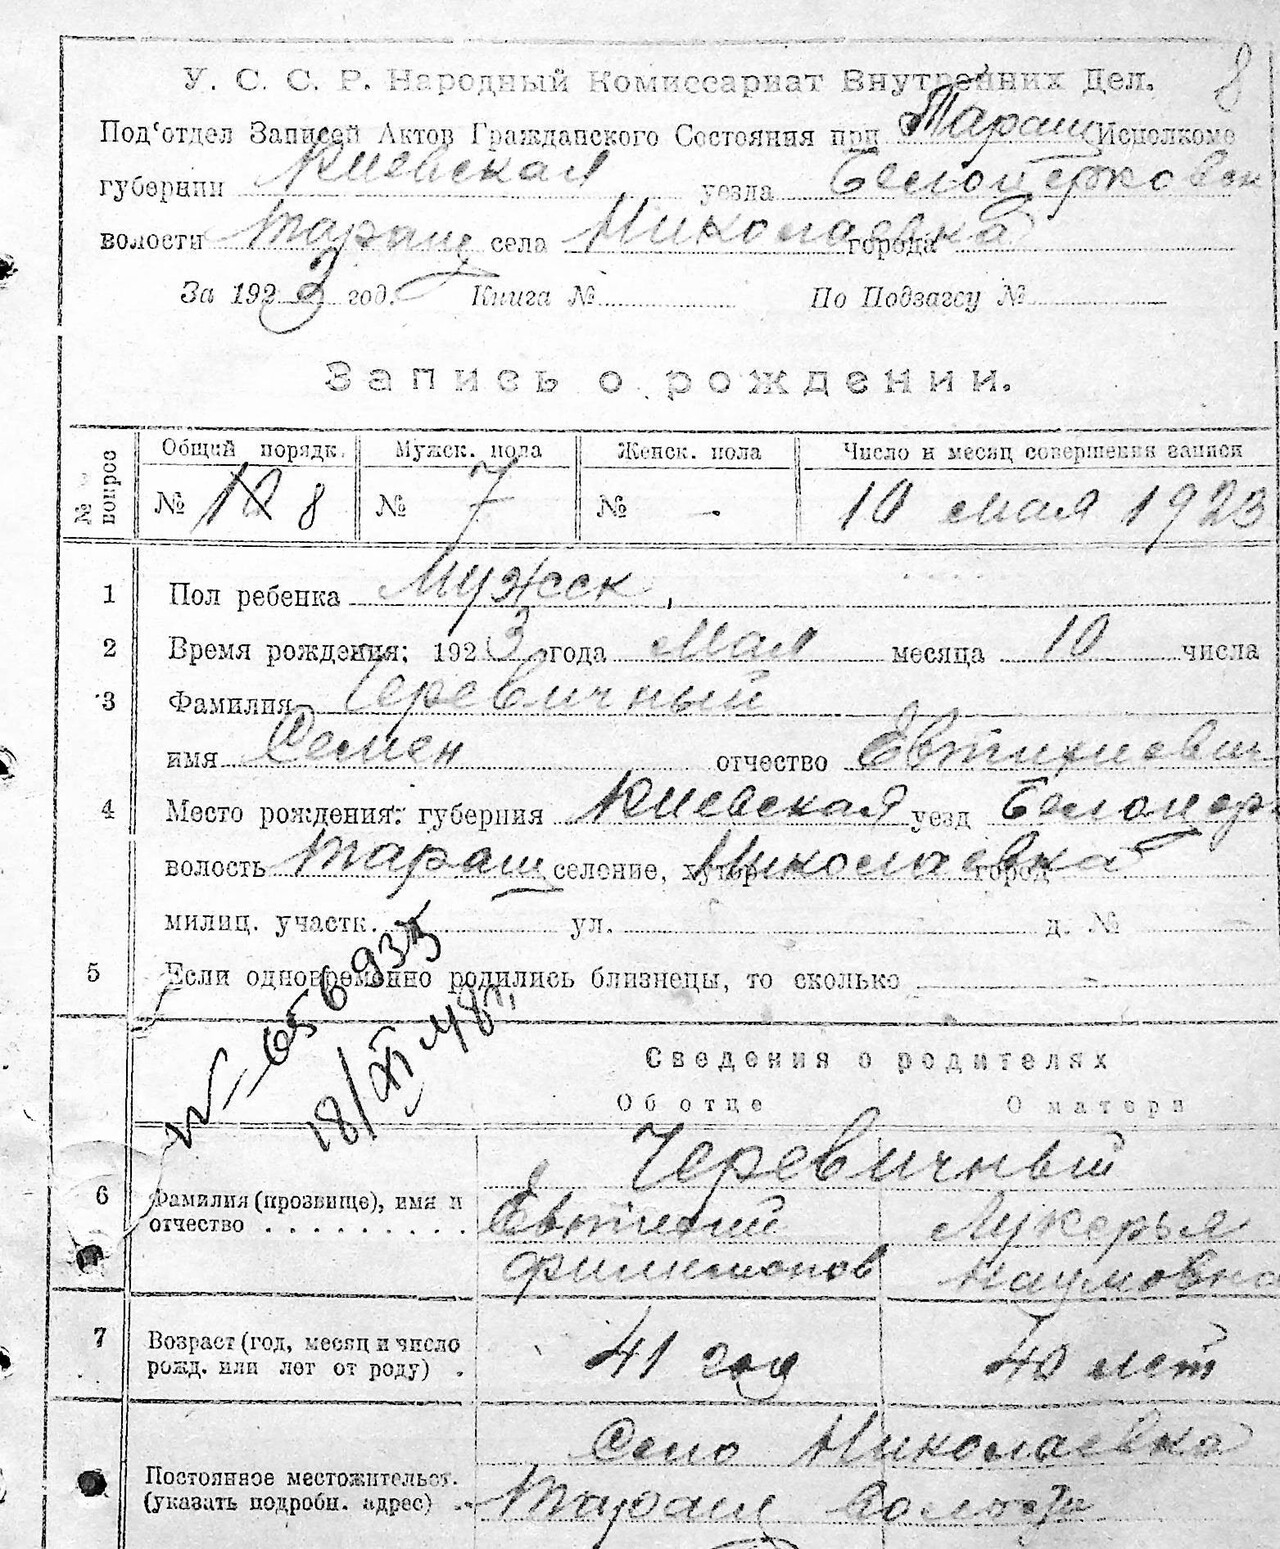 8
У. С. С. Р. Народный Комиссариат Внутренних Дел.
Под'отдел Записей Актов Гражданского Состояния при Таращ Исполкоме
губернии Киевская уезда Белоцерковск
волости Таращ села Николаевка города
За 1923 год. Книга № По Подзагсу №
Запись о рождении.
№ вопрос Общий порядк. Мужск. пола Женск. пола Число и месяц совершения записи
№ 10 8 № 7 № - 10 мая 1923
1 Пол ребенка Мужеск
2 Время рождения: 1923 года Мая месяца 10 числа
3 Фамилия Черевичный
имя Семен отчество Евтихиевич
4 Место рождения: губерния Киевская уезд Белоцерк
волость Таращ селение, хутор Николаевка город
милиц. участк. ул. д. №
5 Если одновременно родились близнецы, то сколько -
656935
18/XII 48г.
Сведения о родителях
Об отце О матери
Черевичный
6 Фамилия (прозвище), имя и Евтихий Лукерья
отчество Филимонов Наумовна
7 Возраст (год, месяц и число 41 год 40 лет
рожд. или лет от роду)
Село Николаевка
Постоянное местожительст.
(указать подробн. адрес) Таращ волости